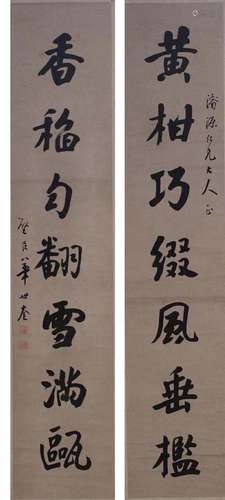 濬源仁兄大人正
黃柑巧綴風垂檻
香稻勻翻雪滿甌
璧臣華世奎